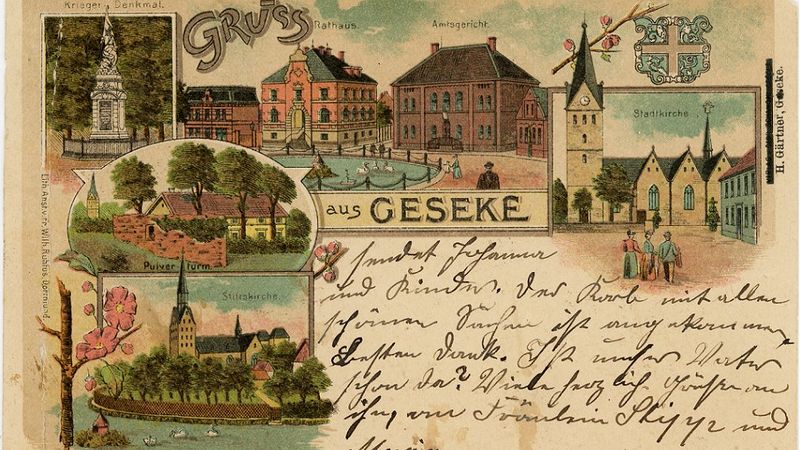 Krieger Denkmal.
GRUSS
Rathaus.
Amtsgericht.
Stadtkirche.
H. Gärtner, Geseke.
aus GESEKE
Pulver Turm.
Stiftskirche.
Lith. Anst. v. Wilh. Dortmund.
sendet Johanna
und Kinder. Der Korb mit allen
schönen Sachen ist angekommen
Besten Dank. Ist unser Vater
schon da? Viele herzlich Grüße an
ihn, an Fräulein und